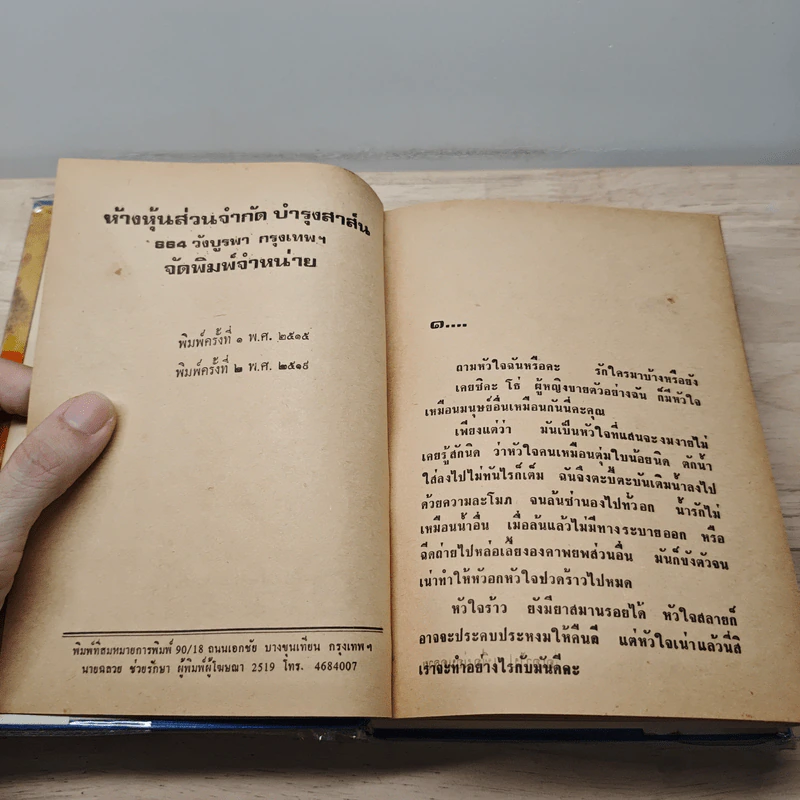 ห้างหุ้นส่วนจำกัด บำรุงสาส์น
๖๘๔ วังบูรพา กรุงเทพฯ
จัดพิมพ์จำหน่าย
พิมพ์ครั้งที่ ๑ พ.ศ. ๒๕๑๕
พิมพ์ครั้งที่ ๒ พ.ศ. ๒๕๑๙
พิมพ์ที่สมหมายการพิมพ์ 90/18 ถนนเอกชัย บางขุนเทียน กรุงเทพฯ
นายฉลวย ช่วยรักษา ผู้พิมพ์ผู้โฆษณา 2519 โทร. 4684007
๑....
ถามหัวใจฉันหรือคะ รักใครมาบ้างหรือยัง
เคยซิคะ โธ่ ผู้หญิงขายตัวอย่างฉัน ก็มีหัวใจ
เหมือนมนุษย์อื่นเหมือนกันนี่คะคุณ
เพียงแต่ว่า มันเป็นหัวใจที่แสนจะงมงายไม่
เคยรู้สักนิด ว่าหัวใจคนเหมือนตุ่มใบน้อยนิด ตักน้ำ
ใส่ลงไปไม่ทันไรก็เต็ม ฉันจึงตะบี้ตะบันเติมน้ำลงไป
ด้วยความละโมภ จนล้นซ่านองไปทั่วอก น้ำรักไม่
เหมือนน้ำอื่น เมื่อล้นแล้วไม่มีทางระบายออก หรือ
ฉีดถ่ายไปหล่อเลี้ยงองคาพยพส่วนอื่น มันก็ขังตัวจน
เน่าทำให้หัวอกหัวใจปวดร้าวไปหมด
หัวใจร้าว ยังมียาสมานรอยได้ หัวใจสลายก็
อาจจะประคบประหงมให้คืนดี แต่หัวใจเน่าแล้วนี่สิ
เราจะทำอย่างไรกับมันดีคะ